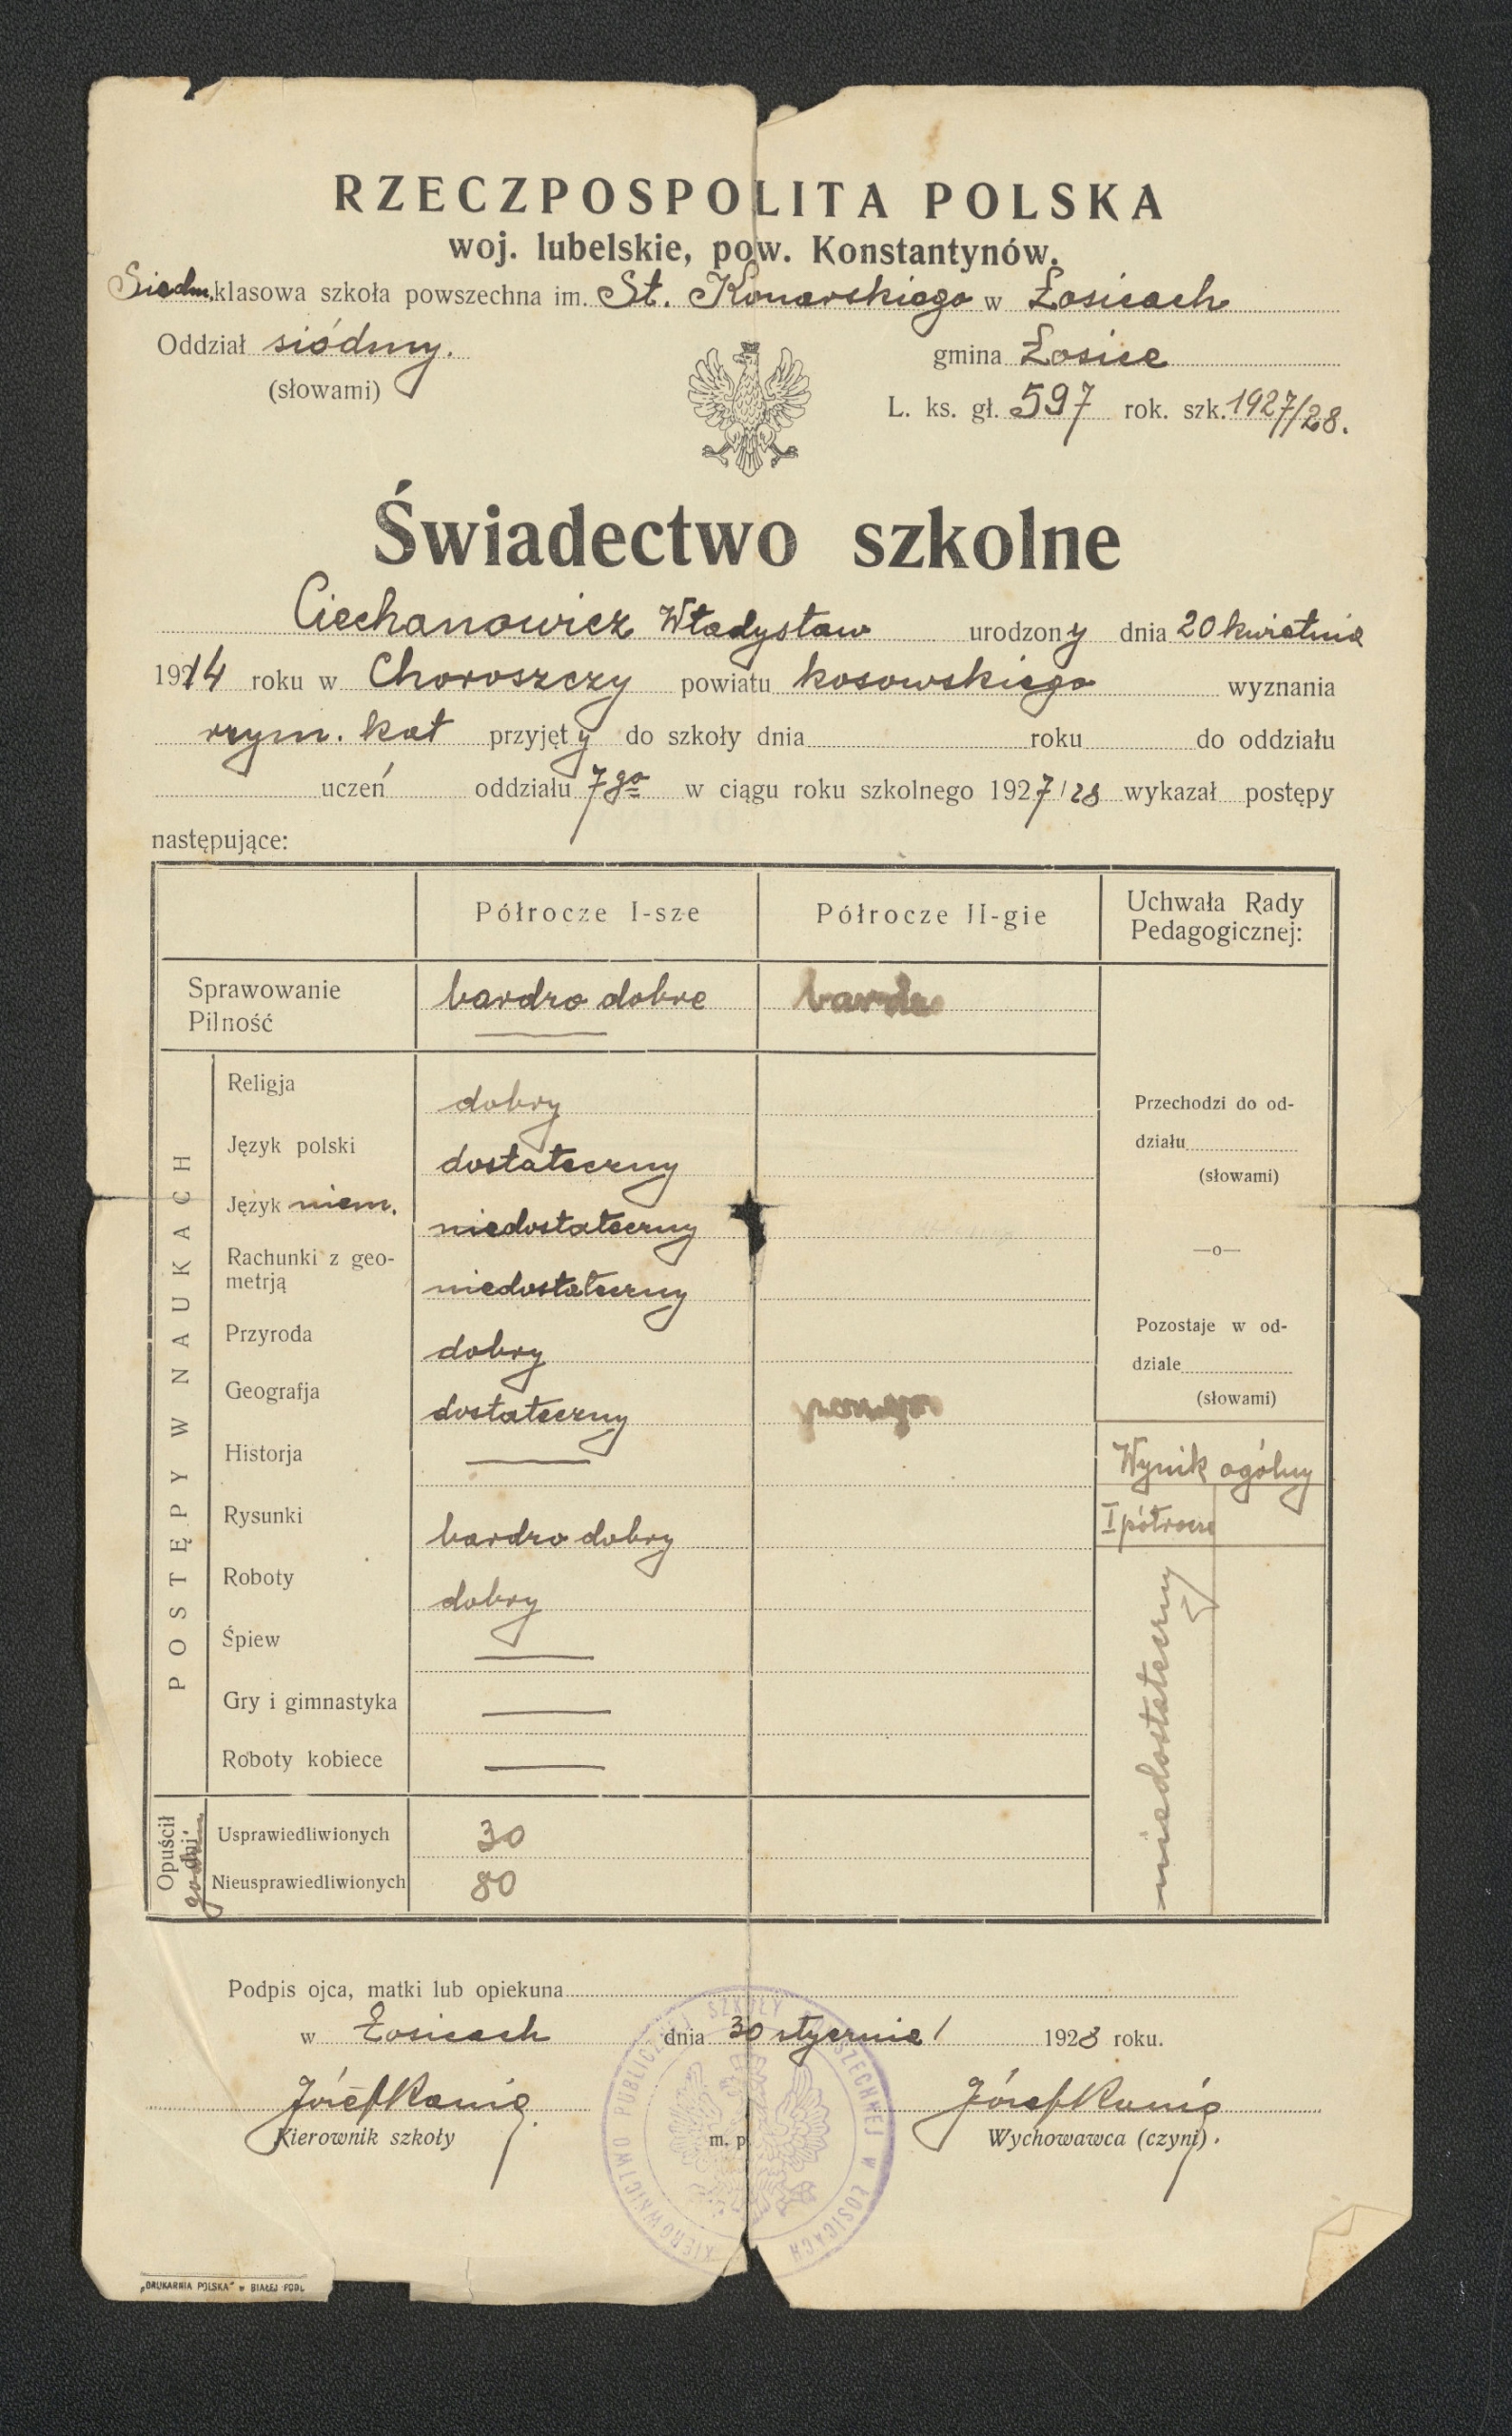 RZECZPOSPOLITA POLSKA
woj. lubelskie, pow. Konstantynów.
Siedm.klasowa szkoła powszechna im. St. Konarskiego w Łosicach
Oddział siódmy.
(słowami)
gmina Łosice
L. ks. gł. 597 rok. szk. 1927/28.
Świadectwo szkolne
Ciechanowicz Władysław urodzony dnia 20 kwietnia
1914 roku w Choroszczy powiatu kosowskiego wyznania
rzym. kat przyjęty do szkoły dnia roku do oddziału
uczeń oddziału 7go w ciągu roku szkolnego 1927/28 wykazał postępy
następujące:
Półrocze I-sze Półrocze II-gie Uchwała Rady
Pedagogicznej:
Sprawowanie bardzo dobre bardzo
Pilność —
POSTĘPY W NAUKACH
Religja dobry
Język polski dostateczny
Język niem. niedostateczny
Rachunki z geo-
metrją niedostateczny
Przyroda dobry
Geografja dostateczny
Historja —
Rysunki bardzo dobry
Roboty dobry
Śpiew —
Gry i gimnastyka —
Roboty kobiece —
Przechodzi do od-
działu
(słowami)
—o—
Pozostaje w od-
dziale
(słowami)
Wynik ogólny
I półrocze
niedostateczny
Opuścił
dni
godzin
Usprawiedliwionych 30
Nieusprawiedliwionych 80
Podpis ojca, matki lub opiekuna
w Łosicach dnia 30 stycznia 1928 roku.
Józef Kania Józef Kania
Kierownik szkoły m. p. Wychowawca (czyni).
KIEROWNICTWO PUBLICZNEJ SZKOŁY POWSZECHNEJ W ŁOSICACH
„DRUKARNIA POLSKA" w BIAŁEJ PODL.